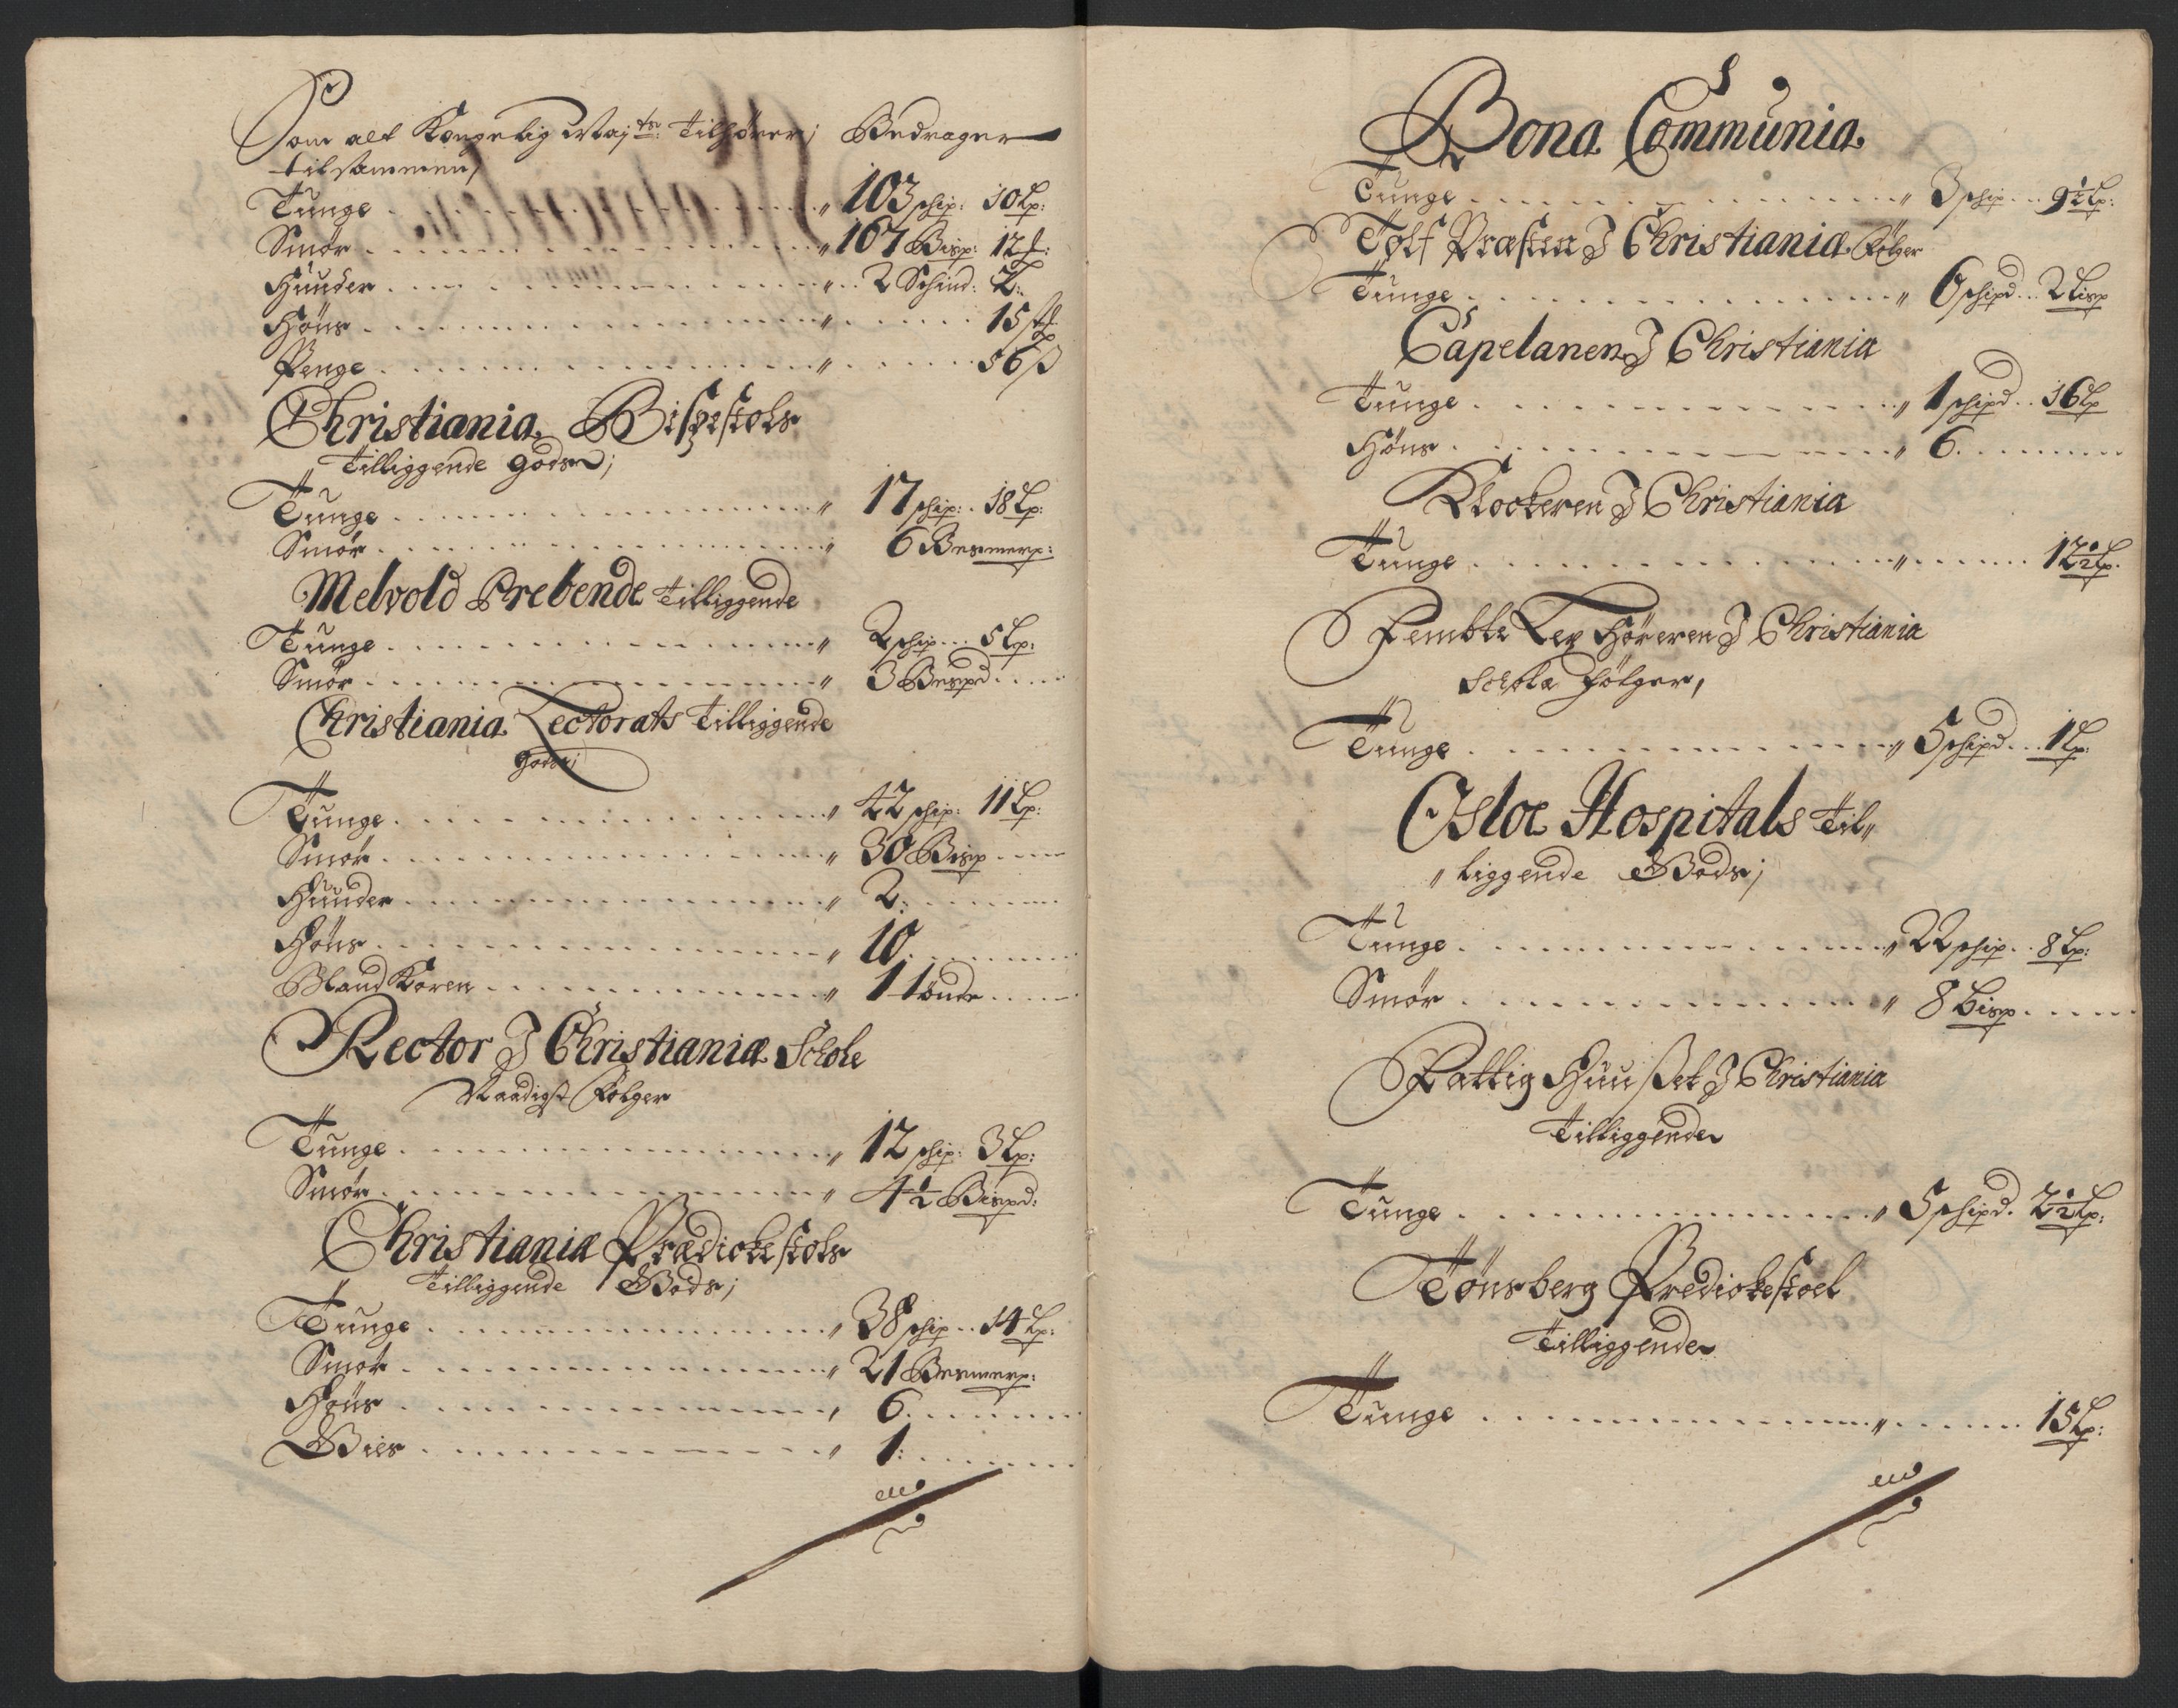 Som alt Kongelig Maj:ts Tilhører; Bedrager
tilsammen,
Tunge . . . . " 103 schip: 10 Lp:
Smør . . . . " 167 Bisp: 12 
Huuder . . . . " . . 2 Schind: 2:
Høns . . . . " . . . . 15
Penge . . . . " . . . . 56 ß
Christiania Bispestols
Tilliggende godtz;
Tunge . . . . " 17 schip: . 18 Lp:
Smør . . . . " 6 Besmerp:
Melvold Prebende Tilliggende
Tunge . . . . " 2 schip . . . 5 Lp:
Smør . . . . " 3 Bespd . . . .
Christiania Lectorats Tilliggende
Godtz;
Tunge . . . . " 42 schip: 11 Lp:
Smør . . . . " 30 Bisp . . . .
Huuder . . . . " 2: . . . .
Høns . . . . " 10: . . . .
Bland Koren . . . . " 1 tønde . . . .
Rector I Christiania Schole
Naadigst Følger
Tunge . . . . " 12 schip: 3 Lp:
Smør . . . . " 4 1/2 Bispd:
Christiania Prædickestols
Tilliggende Gods;
Tunge . . . . " 38 schip . . 14 Lp:
Smør . . . . " 21 Besmerp:
Høns . . . . " 6 . . . .
Giès . . . . " 1: . . . .
Bona Communia
Tunge . . . . " 3 schip . . . 9 1/2 Lp:
Tolf Præsten I Christiania Følger
Tunge . . . . " 6 schipd . . . 2 Lisp
Capelanen I Christiania
Tunge . . . . " 1 schipd . . 16 Lp
Høns . . . . " 6 . . . .
Klockeren I Christiania
Tunge . . . . " . . . . 12 1/2 Lp.
Fembte Lex Høreren I Christiania
Schole følger,
Tunge . . . . " 5 schipd . . . 1 Lp:
Osloe Hospitals Til"
" liggende Gods;
Tunge . . . . " 22 schip . . 8 Lp:
Smør . . . . " 8 Bisp . . . .
Fattig Huußet I Christiania
Tilliggende
Tunge . . . . " 5 schipd . 2 1/2 Lp:
Tønsberg Predickestoel
Tilliggende
Tunge . . . . " . . . . 15 Lp: